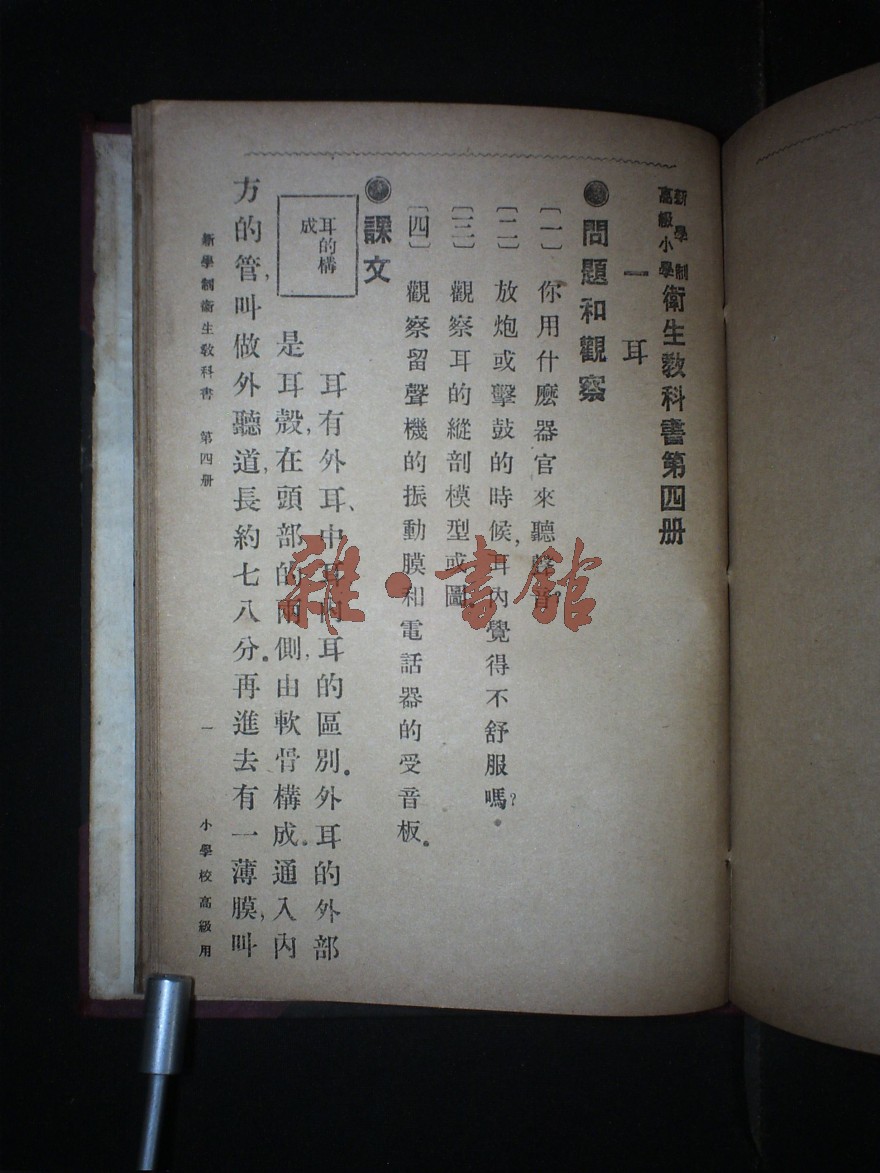 新學制
高級小學
衛生教科書第四册
一 耳
●問題和觀察
〔一〕你用什麽器官來聽聲音?
〔二〕放炮或擊鼓的時候,耳內覺得不舒服嗎?
〔三〕觀察耳的縱剖模型或圖。
〔四〕觀察留聲機的振動膜和電話器的受音板。
●課文
耳的構
成
耳有外耳、中耳、內耳的區別。外耳的外部
是耳殼,在頭部的兩側,由軟骨構成。通入內
方的管,叫做外聽道,長約七八分。再進去有一薄膜,叫
新學制衛生教科書 第四册 一 小學校高級用
雜·書館